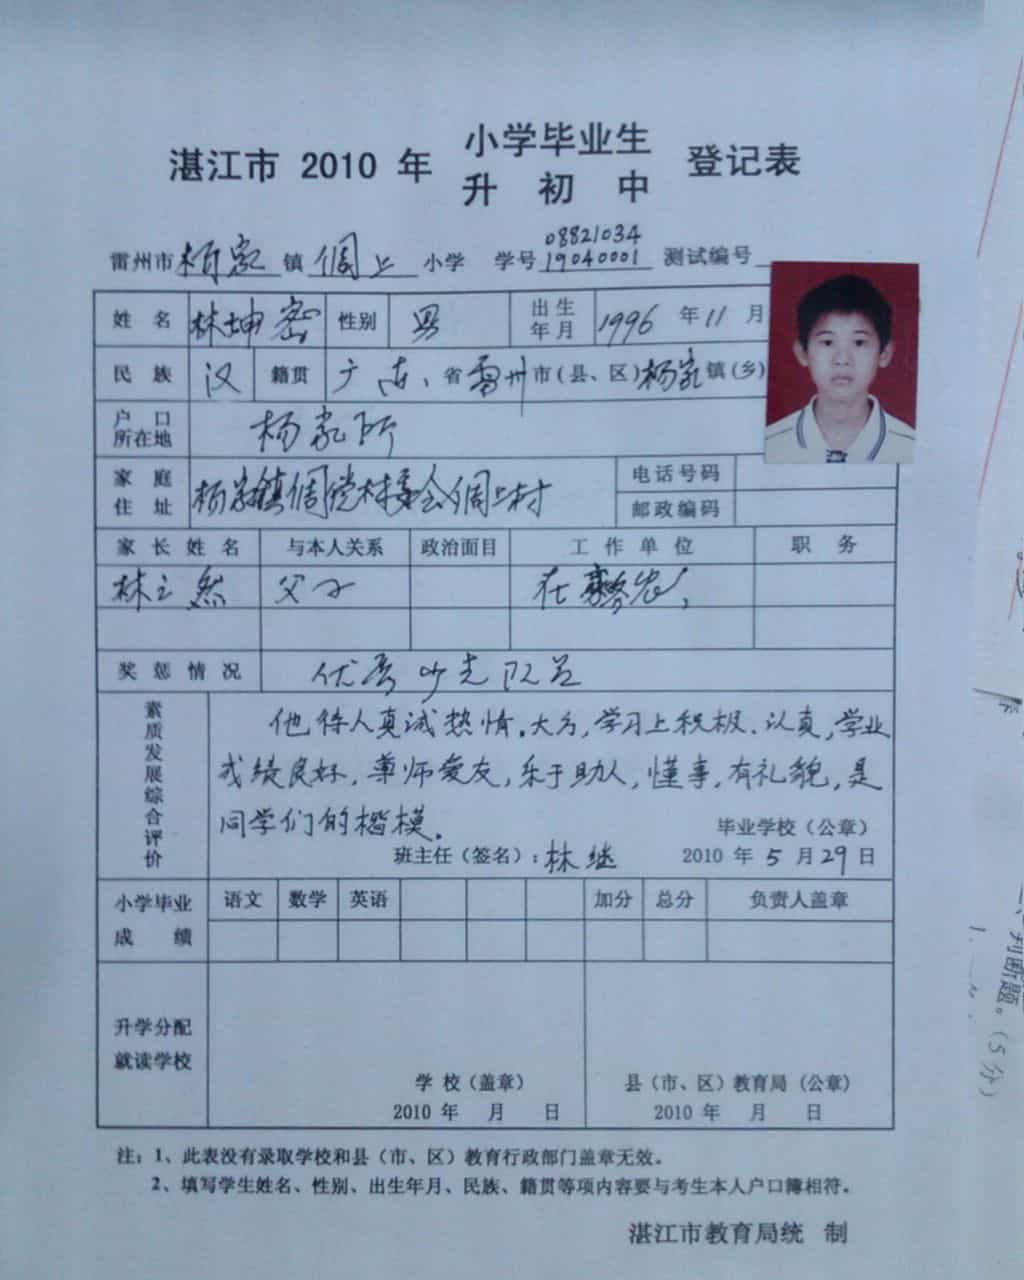 湛江市 2010 年 小学毕业生 登记表
升 初 中
雷州市 杨家 镇 倜上 小学 学号 08821034 19040001 测试编号
姓 名 林坤密 性别 男 出生年月 1996 年 11 月
民 族 汉 籍贯 广东 省 雷州 市(县、区) 杨家 镇(乡)
户 口 所在地 杨家所
家 庭 住 址 杨家镇 村委会 上村 电话号码
邮政编码
家 长 姓 名 与本人关系 政治面目 工 作 单 位 职 务
林 然 父子 在家务农
奖 惩 情 况 优秀少先队员
素质发展综合评价
他待人真诚热情。大方,学习上积极、认真,学业
成绩良好,尊师爱友,乐于助人,懂事,有礼貌,是
同学们的楷模。
毕业学校(公章)
班主任(签名):林继 2010 年 5 月 29 日
小学毕业 成 绩 语文 数学 英语 加分 总分 负责人盖章
升学分配 就读学校
学 校(盖章) 县(市、区)教育局(公章)
2010 年 月 日 2010 年 月 日
注:1、此表没有录取学校和县(市、区)教育行政部门盖章无效。
2、填写学生姓名、性别、出生年月、民族、籍贯等项内容要与考生本人户口簿相符。
湛江市教育局统 制
判断题。(5分)